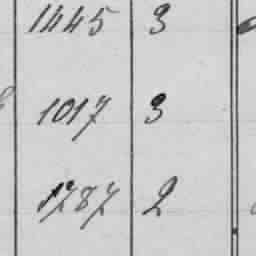 1445 3
1017 3
1787 2